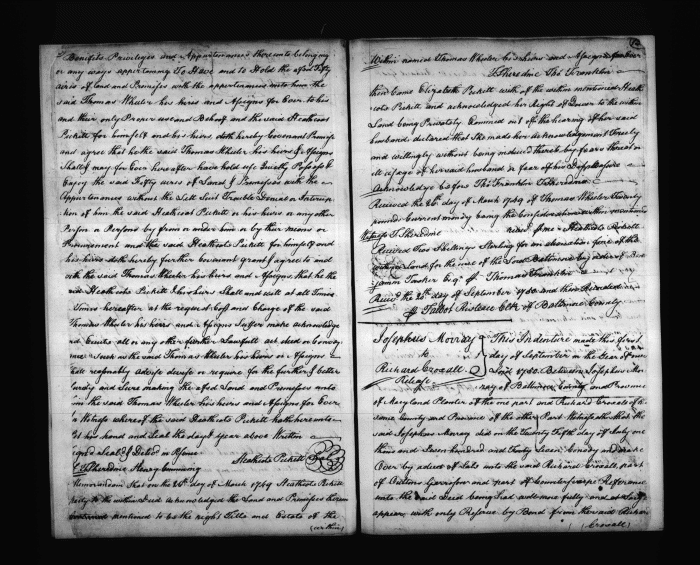 Benefits Priviledges and Appurtenances thereunto belonging
or any ways appertaining To Have and to Hold the afsd Fifty
acres of Land and Premises with the appurtenances unto him the
said Thomas Wheler his heirs and Assigns for Ever to his
and their only Proper use and Behoof and the said Heathcoat
Pickett for himself and his heirs doth hereby Covenant Promise
and agree that he the said Thomas Wheler his heirs & Assigns
Shall & may for Ever hereafter have hold use Quietly Possess &
Enjoy the said Fifty acres of Land & Premises with the
Appurtenances without the Lett Suit Trouble Denial or Interrup
tion of him the said Heathcoat Pickett or his heirs or any other
Person or Persons by from or under him or by their means or
Procurement and the said Heathcoat Pickett for himself and
his heirs doth hereby further Covenant grant & agree to and
with the said Thomas Wheler his heirs and Assigns that he the
said Heathcote Pickett & his heirs Shall and will at all Times
Times hereafter at the request Cost and Charge of the said
Thomas Wheler his heirs and Assigns Suffer make acknowledge
and Execute all or any other further Lawfull act deed or Convey
ance Such as the said Thomas Wheler his heirs or Assigns
shall reasonably advise devise or require for the further & better
and Sure making the afsd Land and Premises unto
him the said Thomas Wheler his heirs and Assigns for Ever
In Witness whereof the said Heathcote Pickett hath hereunto
set his hand and Seal the day & year above Written
Signed Seald & Deliv'd in Psence
T Sheredine Henry Cumming Heathcote Pickett Seal
Memorandum that on the 28th day of March 1749 Heathcote Pickett
party to the within Deed acknowledged the Land and Premises therein
contained mentioned to be the right Title and Estate of the
(within)
Within named Thomas Wheler his heirs and Assigns for Ever
T Sheredine Tho Franklin
then Came Elizabeth Pickett wife of the within mentioned Heath
cote Pickett and acknowledged her Right of Dower to the within
Land being Privately Examined out of the hearing of her said
husband declared that She made her acknowledgement Freely
and willingly without being induced thereto by fears threats or
ill usage of her said husband or fear of his Displeasure
Acknowledged before Tho Franklin T Sheredine
Received the 28th day of March 1749 of Thomas Wheler Twenty
pounds Current money being the Consideration within mentioned
Witness T Sheredine Heathcote Pickett
Received Two Shillings Sterling for an alienation fine of the
within Land for the use of the Lord Baltimore by order of Ben
jamin Tasker Esqr Thomas Franklin
Recd the 26th day of September 1750 and then Recorded
Talbot Risteau Clk of Baltimore County
Josephus Murray
to
Richard Croxall
Release
This Indenture made this first
day of September in the Year of our
Lord 1750 Between Josephus Mur
ray of Baltimore County and Province
of Maryland Planter of the one part and Richard Croxall of the
same County and Province of the other Part Witnesseth that the
said Josephus Murray did on the Twenty Fifth day of July one
thous and Seven hundred and Forty Seven Convey and make
Over by a deed of Sale unto the said Richard Croxall part
of Garrison and part of Counterscarpe Reference
unto the said Deed being had will more fully and at large
appear with only Reserve by Bond from the said Richar
(Croxall)